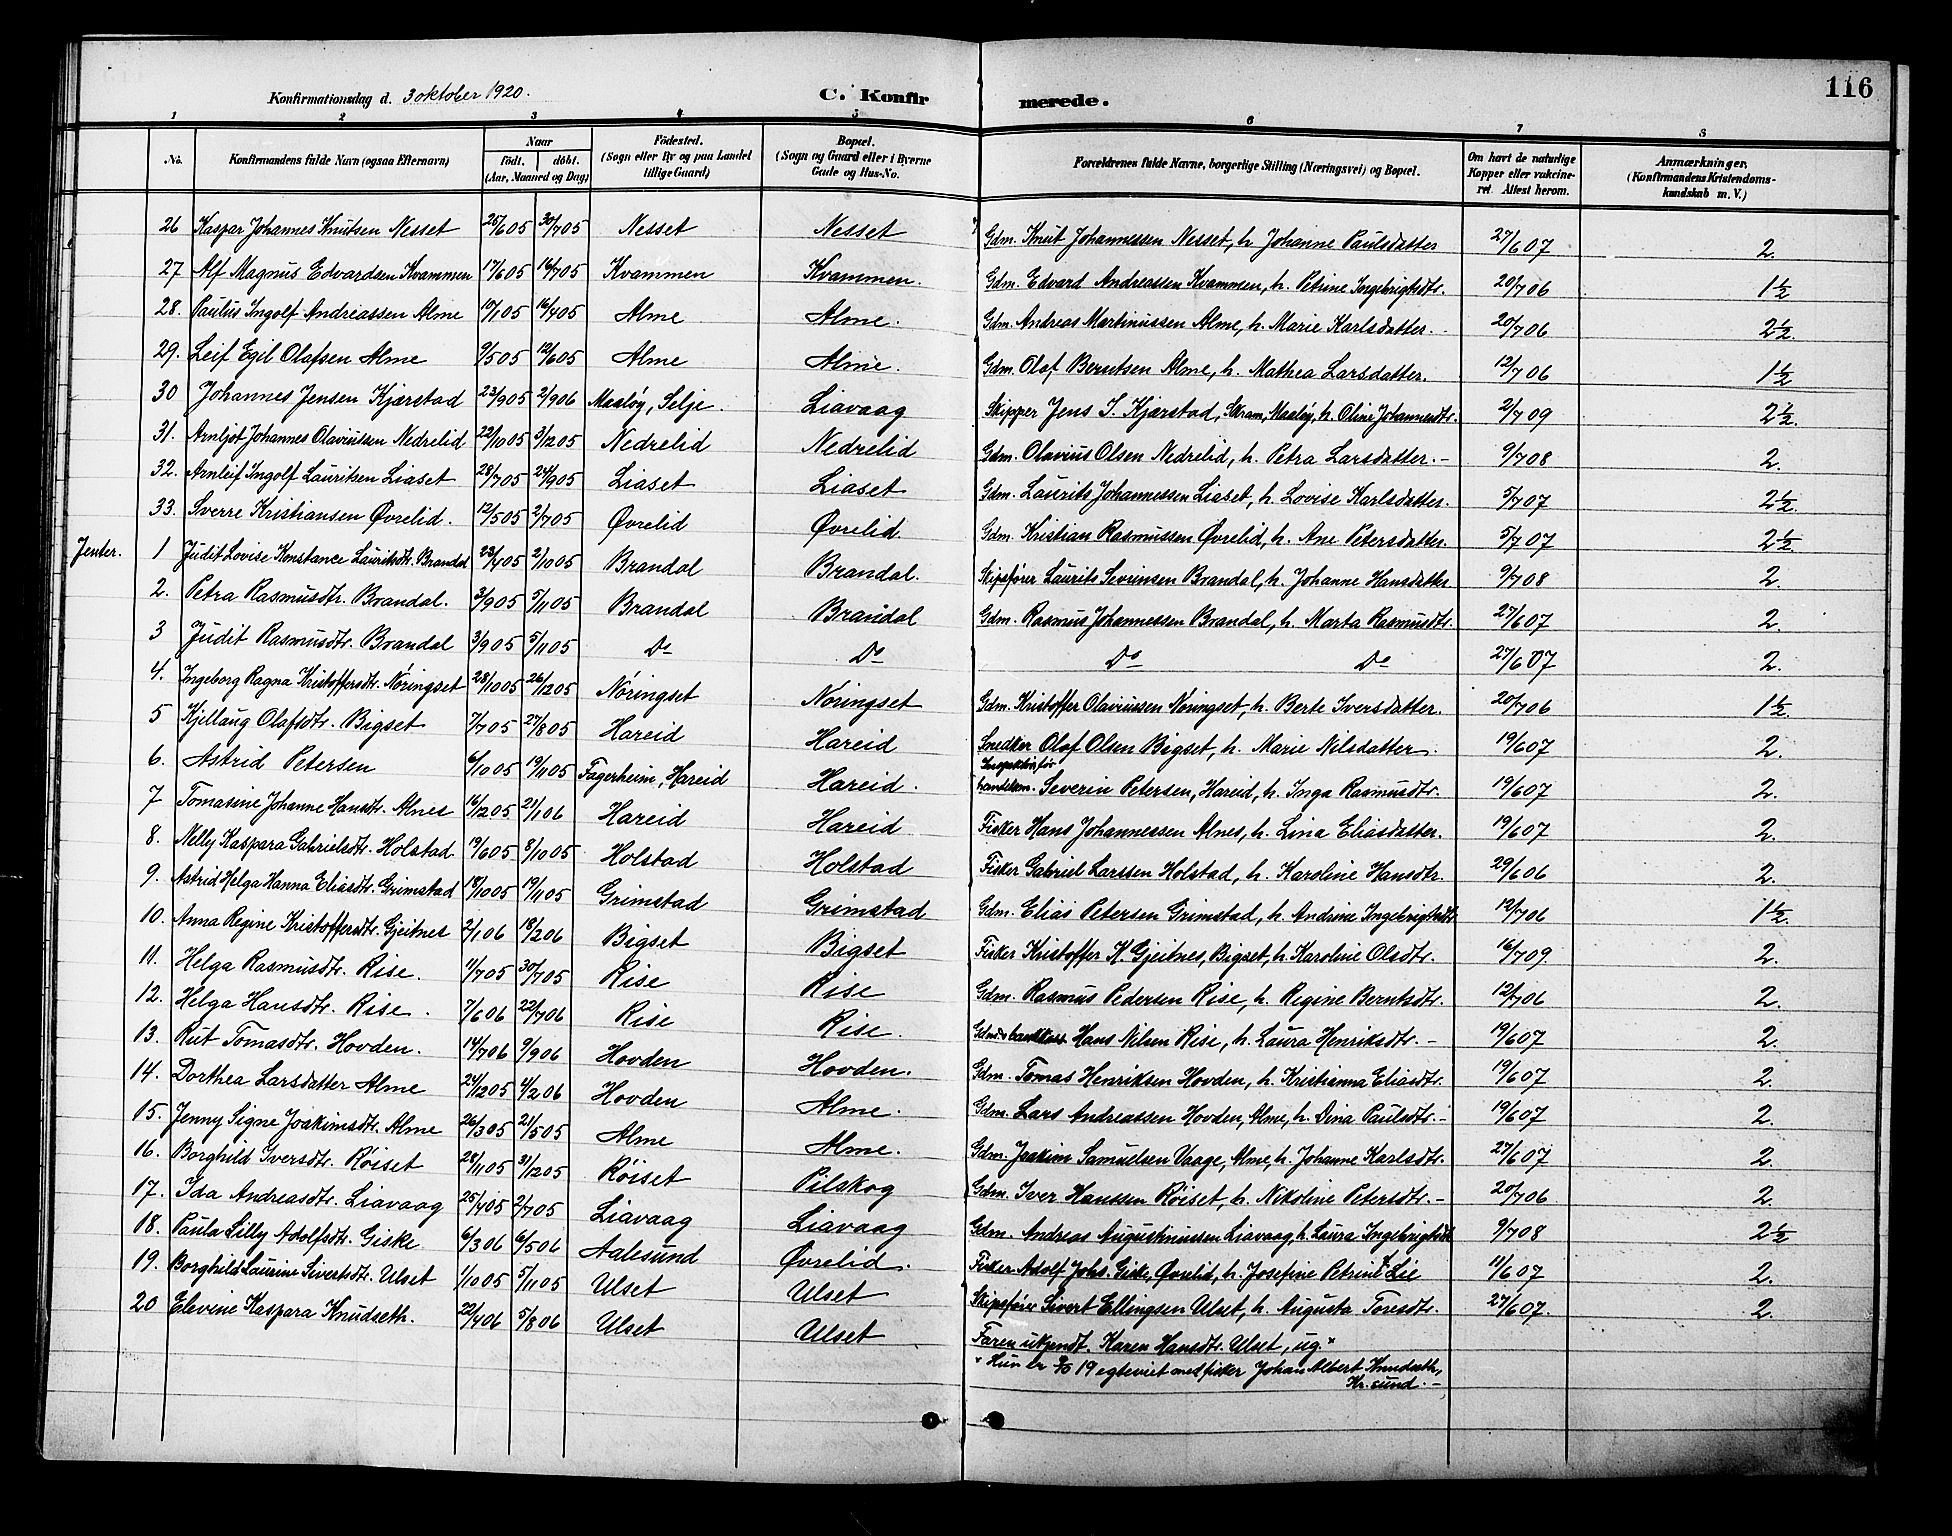 116
Konfirmationsdag d. 3 oktober 1920. C. Konfirmerede.
1 2 3 4 5 6 7 8
No. Konfirmandens fulde Navn (ogsaa Efternavn) Naar födt. döbt. (Aar, Maaned og Dag) Födested. (Sogn eller By og paa Landet tillige Gaard) Bopæl. (Sogn og Gaard eller i Byerne Gade og Hus-No. Forældrenes fulde Navne, borgerlige Stilling (Næringsvei) og Bopæl. Om havt de naturlige Kopper eller vakcineret. Attest herom. Anmærkninger, (Konfirmandens Kristendomskundskab m. V.)
26 Kaspar Johannes Knutsen Nesset 25/6 05 30/7 05 Nesset Nesset Gdm. Knut Johannessen Nesset, h. Johanne Paulsdatter 27/6 07 2.
27 Alf Magnus Edvardsen Kvammen 17/6 05 16/7 05 Kvammen Kvammen. Gdm. Edvard Andreassen Kvammen, h. Petrine Ingebrigtsdtr. 20/7 06 1½
28. Paulus Ingolf Andreassen Alme 10/1 05 16/4 05 Alme Alme. Gdm. Andreas Martinussen Alme, h. Marie Karlsdatter. 20/7 06 2½.
29. Leif Egil Olafsen Alme 9/5 05 12/6 05 Alme Alme. Gdm. Olaf Berntsen Alme, h. Mathea Larsdatter. 12/7 06 1½
30 Johannes Jensen Kjærstad 23/9 05 2/9 06 Maaløy, Selje. Liavaag Skipper Jens I. Kjærstad, Skram, Maaløy, h. Oline Johannesdtr. 2/7 09 2½.
31. Arnljot Johannes Olaviussen Nedrelid 22/10 05 3/12 05 Nedrelid Nedrelid Gdm. Olavius Olsen Nedrelid, h. Petra Larsdatter. 9/7 08 2.
32. Arnleif Ingolf Lauritsen Liaset 28/7 05 24/9 05 Liaset Liaset Gdm. Laurits Johannessen Liaset, h. Lovise Karlsdatter. 5/7 07 2½.
33. Sverre Kristiansen Øvrelid. 12/5 05 2/7 05 Øvrelid Øvrelid Gdm. Kristian Rasmussen Øvrelid, h. Ane Petersdatter. 5/7 07 2½.
Jenter. 1 Judit Lovise Konstance Lauritsdtr. Brandal 23/4 05 2/10 05 Brandal Brandal. Skipsfører Laurits Severinsen Brandal, h. Johanne Hansdatter 9/7 08 2.
2. Petra Rasmusdtr. Brandal. 3/9 05 5/11 05 Brandal Brandal Gdm. Rasmus Johannessen Brandal, h. Marta Rasmusdtr. 27/6 07 2.
3 Judit Rasmusdtr. Brandal 3/9 05 5/11 05 Do Do Do Do 27/6 07 2.
4. Ingeborg Ragna Kristoffersdtr. Nøringset 28/10 05 26/12 05 Nøringset Nøringset Gdm. Kristoffer Olaviussen Nøringset, h. Berte Iversdatter. 20/7 06 1½.
5 Kjellaug Olafsdtr. Bigset 7/7 05 27/8 05 Hareid Hareid Snedker Olaf Olsen Bigset, h. Marie Nilsdatter. 19/6 07 2.
6. Astrid Petersen 6/10 05 19/11 05 Fagerheim, Hareid Hareid. Severin Petersen, Hareid, h. Inga Rasmusdtr. 19/6 07 2.
7 Tomasine Johanne Hansdtr. Alnes 16/12 05 21/1 06 Hareid Hareid Fisker Hans Johannessen Alnes, h. Lina Eliasdatter. 19/6 07 2.
8. Nelly Kaspara Gabrielsdtr. Holstad 19/6 05 8/10 05 Holstad Holstad Fisker Gabriel Larssen Holstad, h. Karoline Hansdtr. 29/6 06 2.
9. Astrid Helga Hanna Eliasdtr. Grimstad 18/10 05 19/11 05 Grimstad Grimstad Gdm. Elias Petersen Grimstad, h. Andrine Ingebrigtsdtr 12/7 06 1½.
10. Anna Regine Kristoffersdtr. Gjeitnes 2/1 06 18/2 06 Bigset Bigset Fisker Kristoffer K. Gjeitnes, Bigset, h. Karoline Olsdtr. 16/7 09. 2.
11. Helga Rasmusdtr. Rise. 11/7 05 30/7 05 Rise Rise Gdm. Rasmus Pedersen Rise, h. Regine Berntsdtr. 12/7 06 2.
12. Helga Hansdtr. Rise. 7/6 06 22/7 06 Rise Rise. Hans Nilsen Rise, h. Laura Henriksdtr. 19/6 07 2.
13. Rut Tomasdtr. Hovden. 14/7 06 9/9 06 Hovden Hovden. Gdm. Tomas Henriksen Hovden, h. Kristianna Eliasdtr. 19/6 07 2.
14. Dorthea Larsdatter Alme 24/12 05 4/2 06 Hovden Alme. Gdm. Lars Andreassen Hovden, Alme, h. Dina Paulsdtr. 19/6 07 2.
15. Jenny Signe Joakimsdtr. Alme 26/3 05 21/5 05 Alme Alme. Gdm. Joakim Samuelsen Vaage, Alme, h. Johanne Karlsdtr. 27/6 07 2.
16. Borghild Iversdtr. Røiset 28/11 05 31/12 05 Røiset Pilskog Gdm. Iver Hanssen Røiset, h. Nikoline Petersdtr. 20/7 06 2.
17. Ida Andreasdtr. Liavaag 25/4 05 2/7 05 Liavaag Liavaag Gdm. Andreas Augustinussen Liavaag, h. Laura Ingebrigtsdtr 9/7 08 2½
18. Paula Lilly Adolfsdtr. Giske 6/3 06 6/5 06 Aalesund Øvrelid. Fisker Adolf Johs. Giske, Øvrelid, h. Josefine Petrine Lie 11/6 07 2.
19. Borghild Laurine Sivertsdtr. Ulset 1/10 05 5/11 05 Ulset Ulset Skipsfører Sivert Ellingsen Ulset, h. Augusta Toresdtr. 27/6 07. 2
20 Elevine Kaspara Knudseth. 22/4 06 5/8 06 Ulset Ulset Faren ukjendt. Karen Hansdtr. Ulset, ug.*
* Hun er 19 egteviet med fisker Johan Albert Knudseth,
Kr. sund.